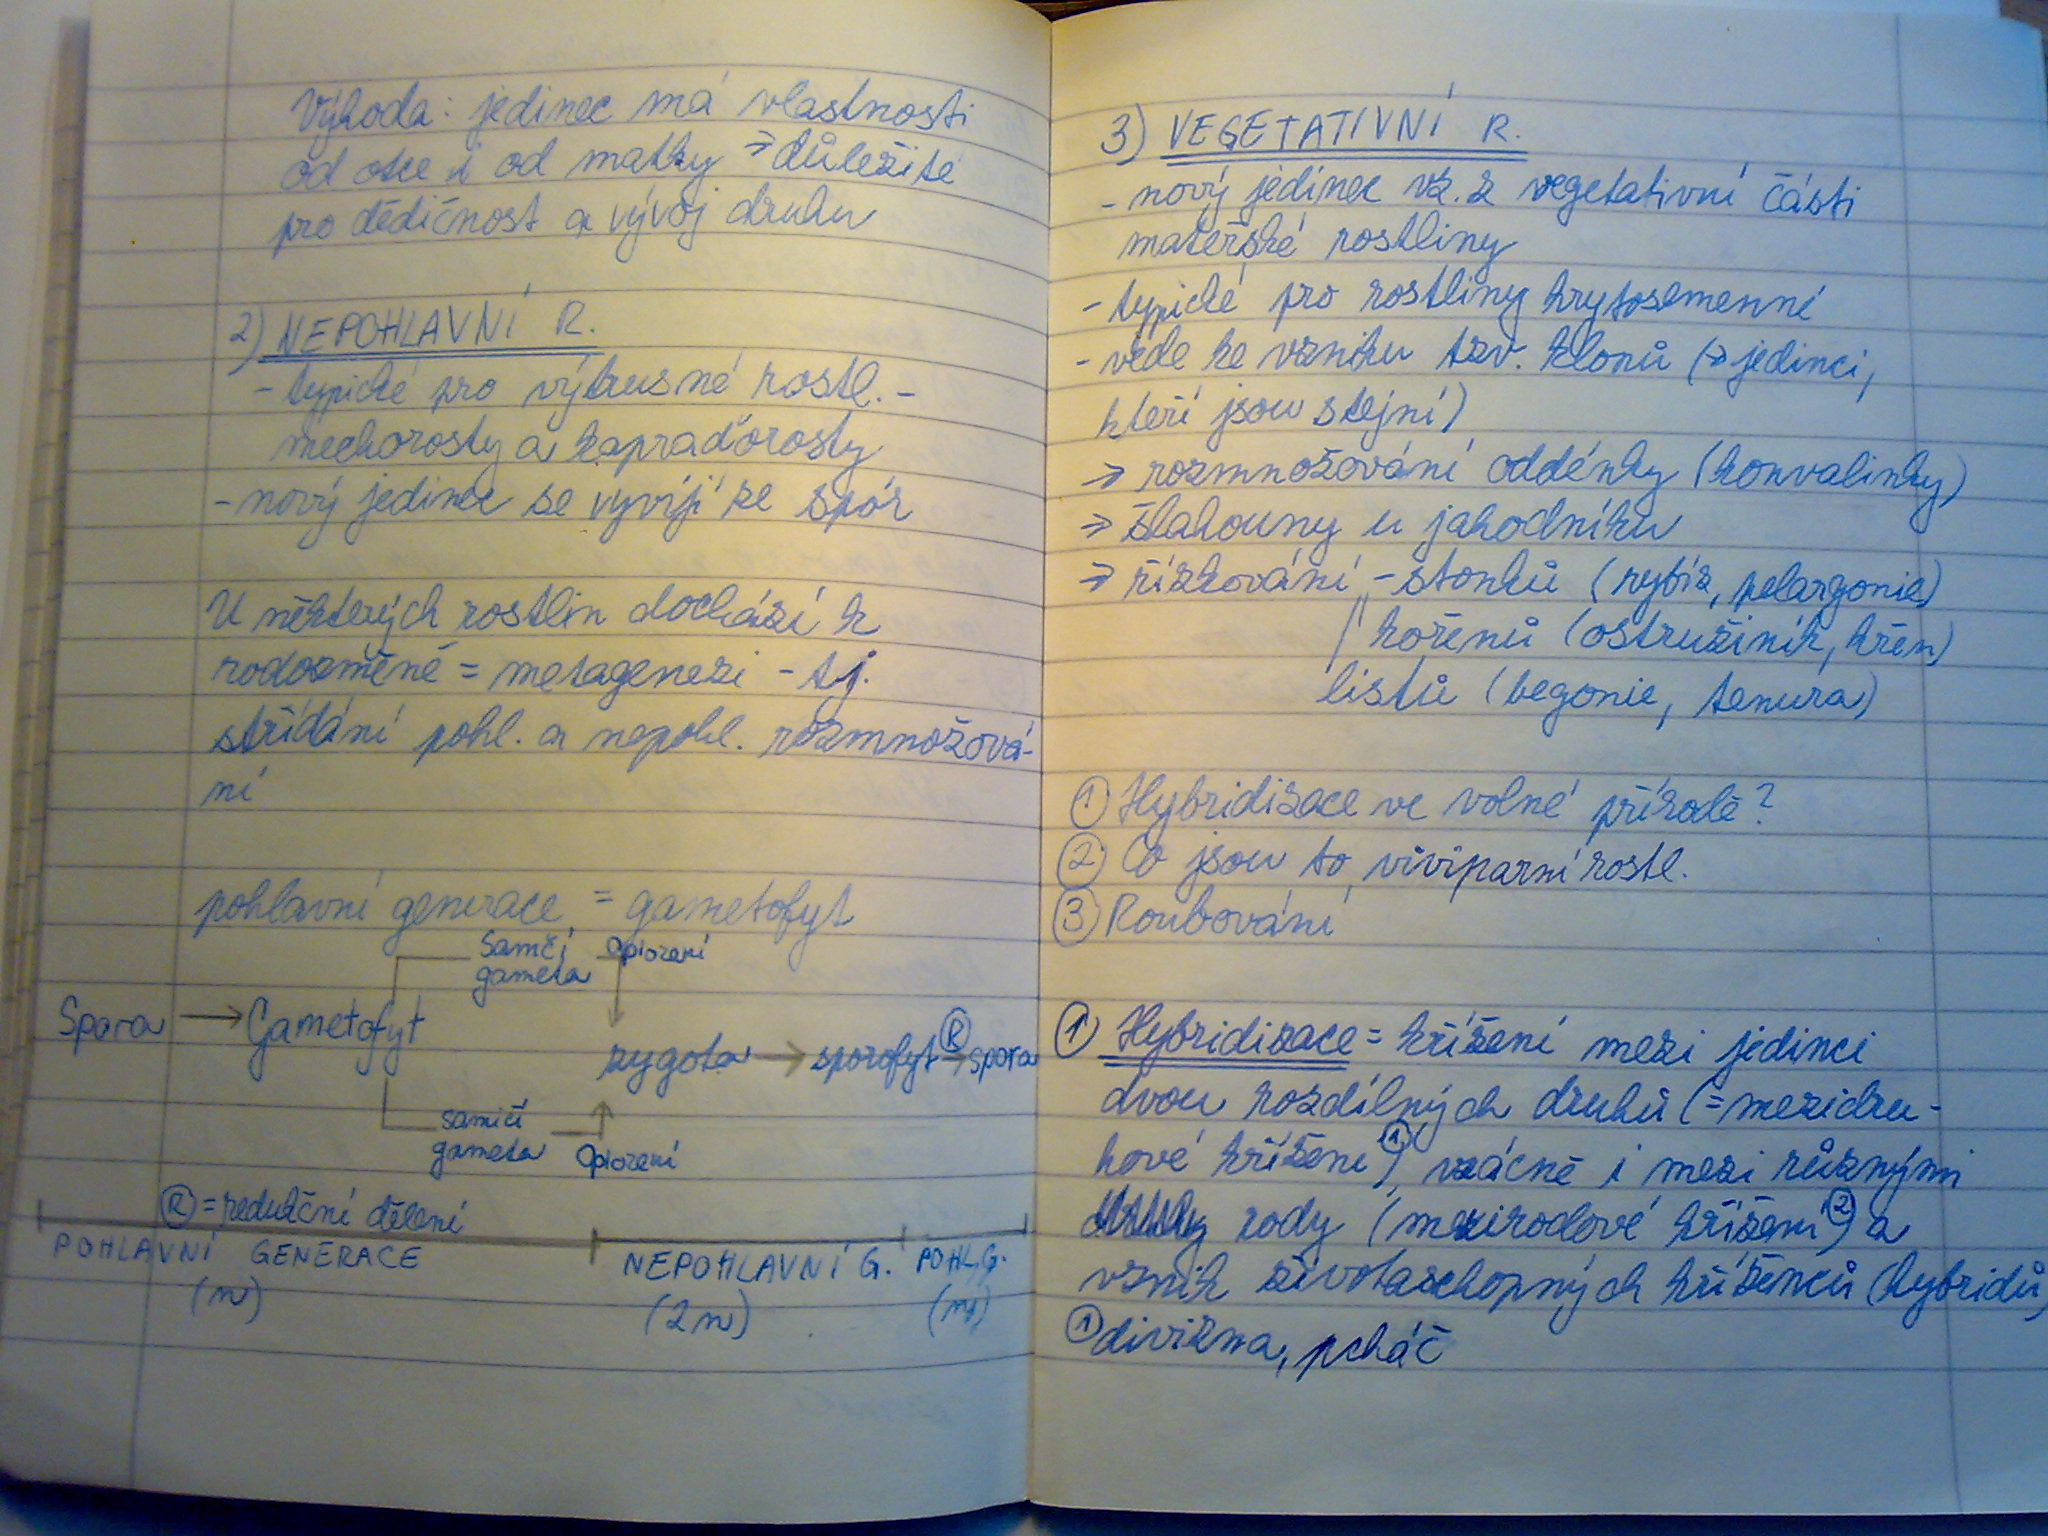 Výhoda: jedinec má vlastnosti
od otce i od matky → důležité
pro dědičnost a vývoj druhu
2) NEPOHLAVNÍ R.
- typické pro výtrusné rostl. -
mechorosty a kapraďorosty
- nový jedinec se vyvíjí ze spór
U některých rostlin dochází k
rodozměně = metagenezi - tj.
střídání pohl. a nepohl. rozmnožová-
ní
pohlavní generace = gametofyt
samčí oplození
gameta
Spora → Gametofyt
zygota → sporofyt Ⓡ→ spora
samičí
gameta oplození
Ⓡ = redukční dělení
POHLAVNÍ GENERACE NEPOHLAVNÍ G. POHL. G.
(n) (2n) (n)
3) VEGETATIVNÍ R.
- nový jedinec vz. z vegetativní části
mateřské rostliny
- typické pro rostliny krytosemenné
- vede ke vzniku tzv. klonů (→ jedinci,
kteří jsou stejní)
→ rozmnožování oddénky (konvalinky)
→ šlahouny u jahodníku
→ řízkování - stonků (rybíz, pelargonie)
kořenů (ostružiník, křen)
listů (begonie, tenura)
① Hybridizace ve volné přírodě?
② Co jsou to viviparní rostl.
③ Roubování
① Hybridizace = křížení mezi jedinci
dvou rozdílných druhů (= mezidru-
hové křížení①), vzácně i mezi různými
rody (mezirodové křížení②) a
vznik životaschopných kříženců (hybridů)
① divizna, pcháč